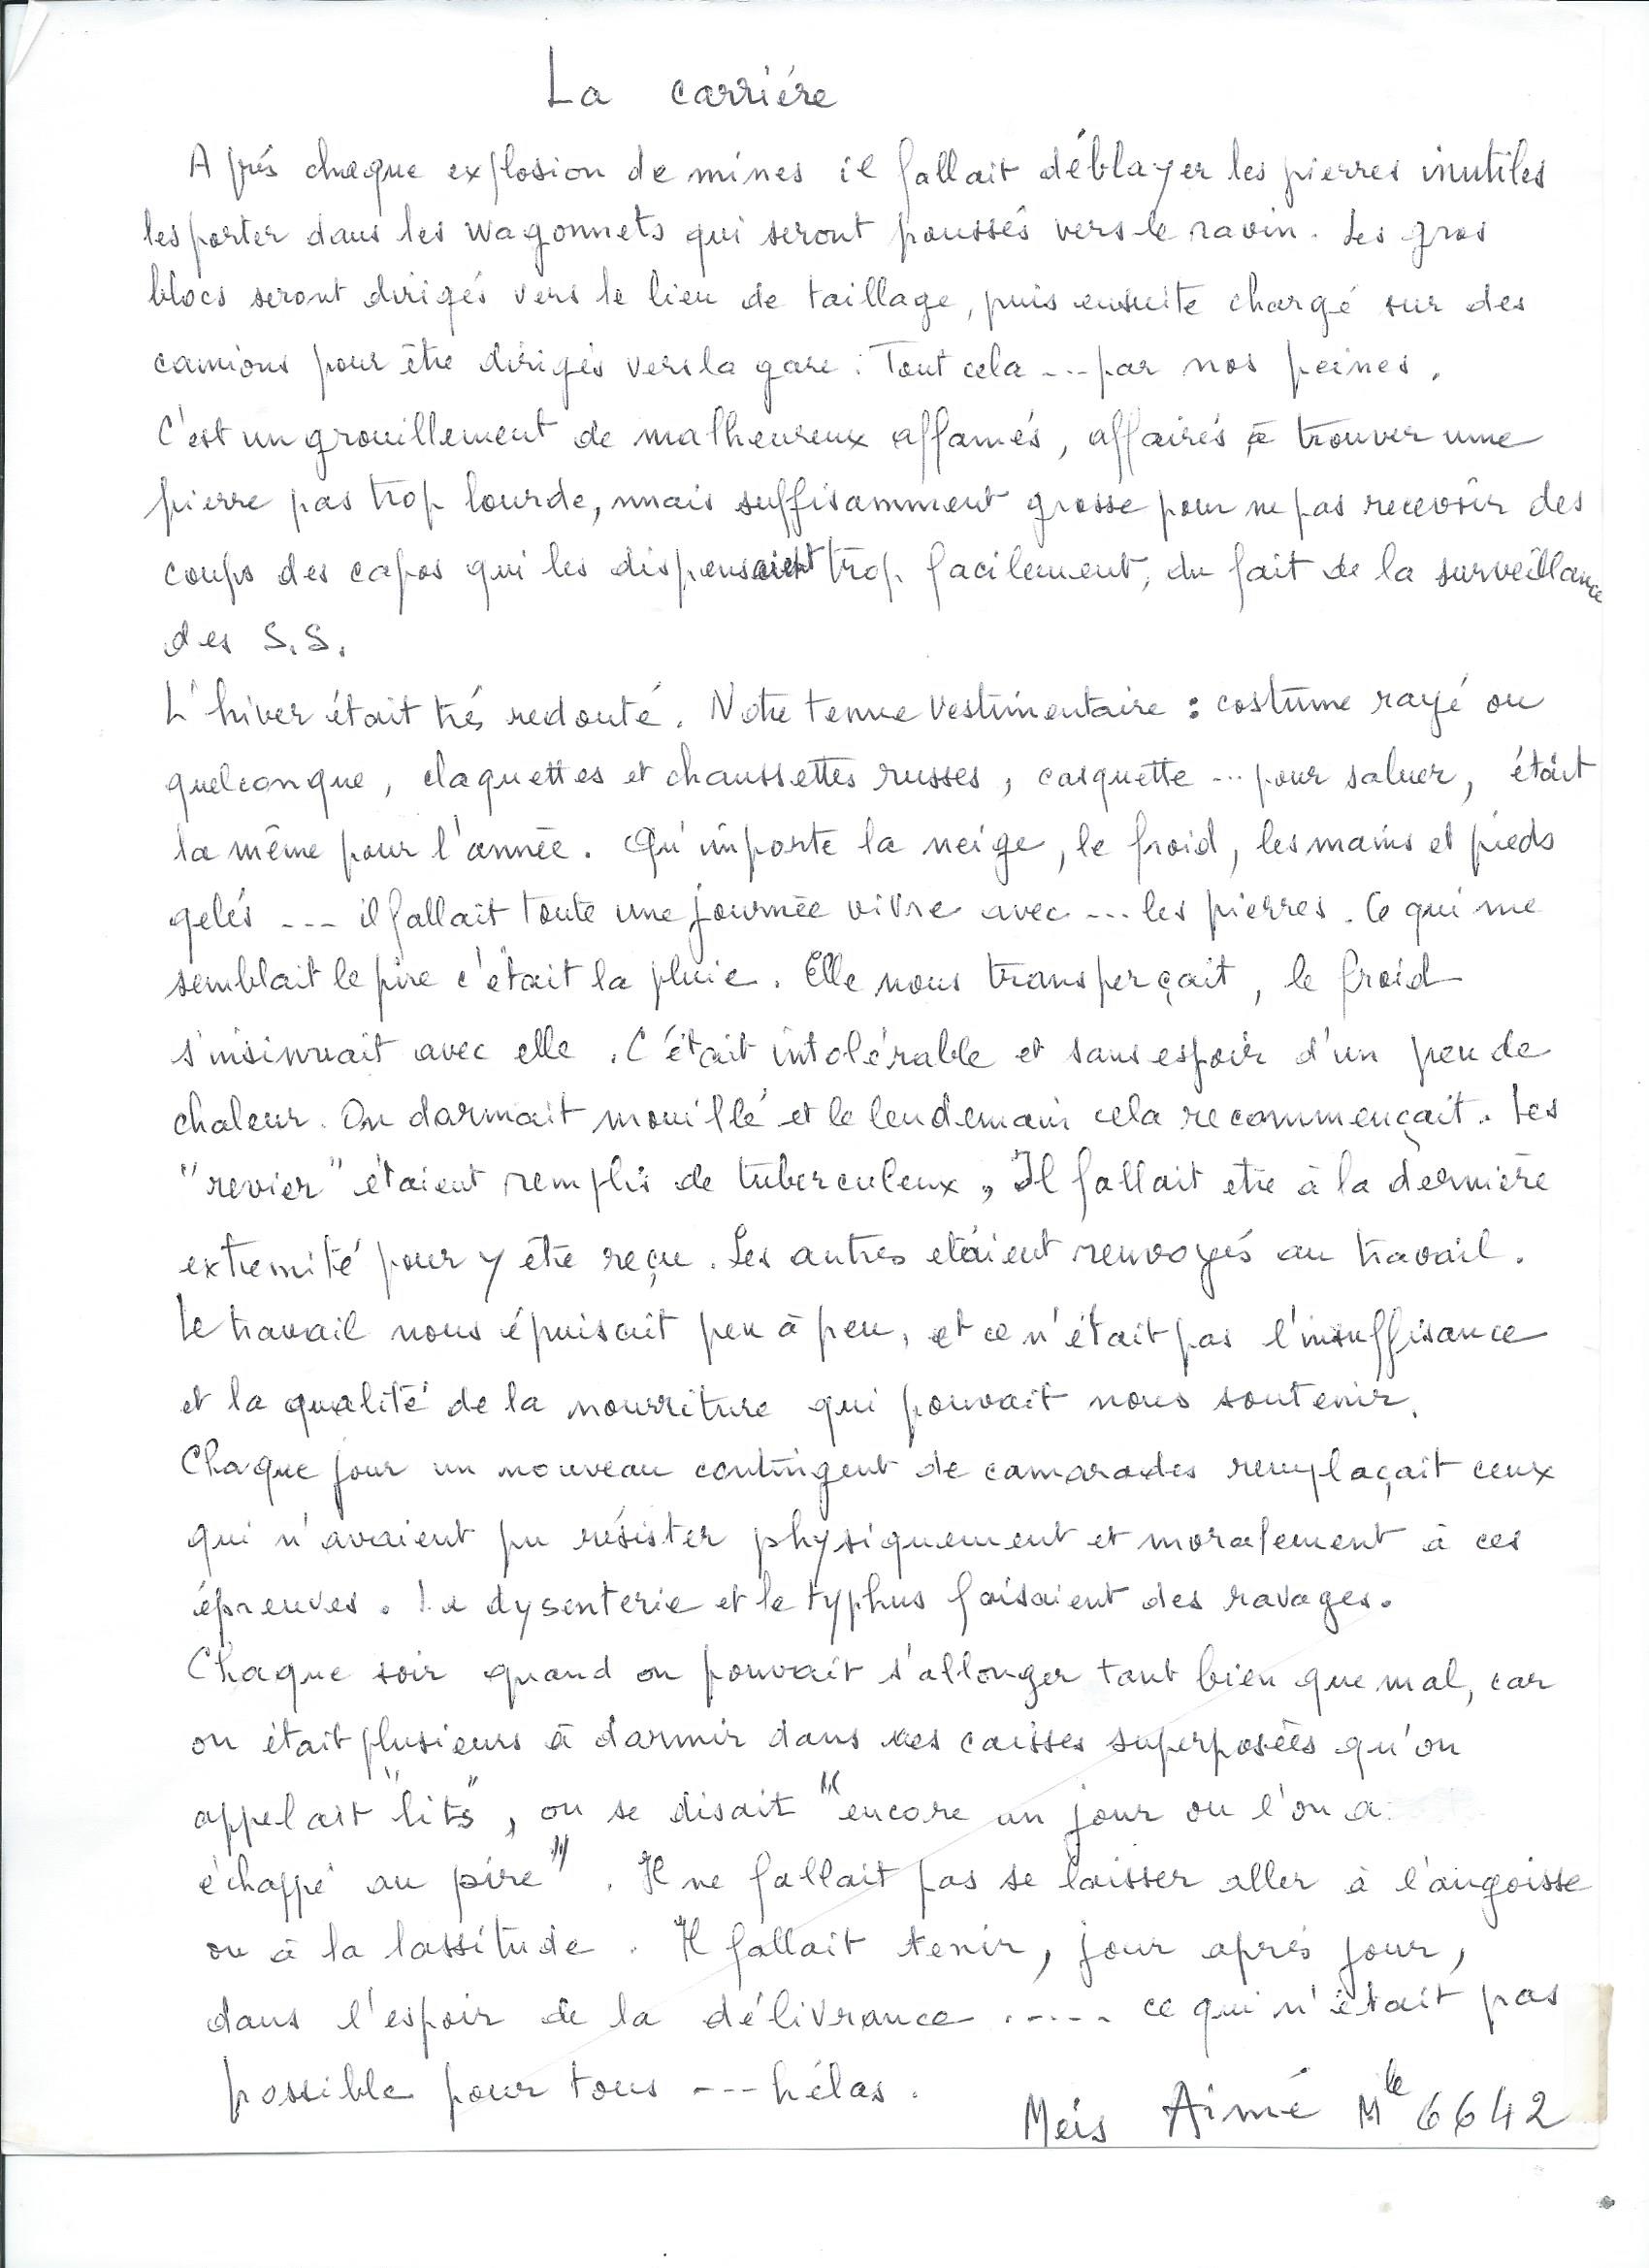 La carriére
Aprés chaque explosion de mines il fallait déblayer les pierres inutiles
les porter dans les wagonnets qui seront poussés vers le ravin. Les gros
blocs seront dirigés vers le lieu de taillage, puis ensuite chargé sur des
camions pour être dirigés vers la gare. Tout cela ... par nos peines.
C'est un grouillement de malheureux affamés, affairés à trouver une
pierre pas trop lourde, mais suffisamment grosse pour ne pas recevoir des
coups des capos qui les dispensaient trop facilement, du fait de la surveillance
des S.S.
L'hiver était trés redouté. Notre tenue vestimentaire : costume rayé ou
quelconque, claquettes et chaussettes russes, casquette ... pour saluer, était
la même pour l'année. Qu'importe la neige, le froid, les mains et pieds
gelés ... il fallait toute une journée vivre avec ... les pierres. Ce qui me
semblait le pire c'était la pluie. Elle nous transperçait, le froid
s'insinuait avec elle. C'était intolérable et sans espoir d'un peu de
chaleur. On dormait mouillé et le lendemain cela recommençait. Les
"revier" étaient remplis de tuberculeux. Il fallait etre à la dernière
extremité pour y être reçu. Les autres etaient renvoyés au travail.
Le travail nous épuisait peu à peu, et ce n'était pas l'insuffisance
et la qualité de la nourriture qui pouvait nous soutenir.
Chaque jour un nouveau contingent de camarades remplaçait ceux
qui n'avaient pu résister physiquement et moralement à ces
épreuves. La dysenterie et le typhus faisaient des ravages.
Chaque soir quand on pouvait s'allonger tant bien que mal, car
on était plusieurs à dormir dans ces caisses superposées qu'on
appelait "lits", on se disait "encore un jour ou l'on a
échappé au pire". Il ne fallait pas se laisser aller à l'angoisse
ou à la lassitude. Il fallait tenir, jour aprés jour,
dans l'espoir de la délivrance ..... ce qui n'était pas
possible pour tous ... hélas.
Meis Aimé Mle 6642